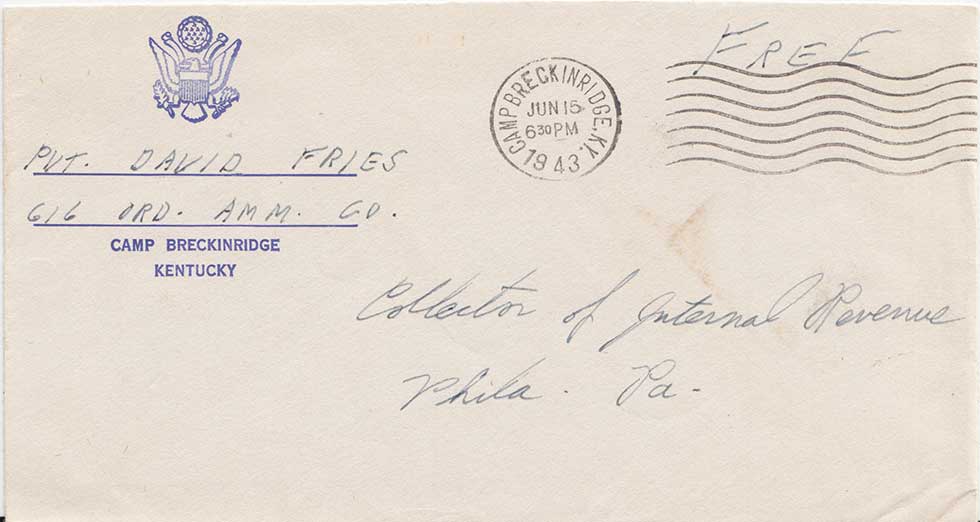 FREE
CAMP BRECKINRIDGE, KY.
JUN 15
6 30 PM
1943
PVT. DAVID FRIES
616 ORD. AMM. CO.
CAMP BRECKINRIDGE
KENTUCKY
Collector of Internal Revenue
Phila. Pa.